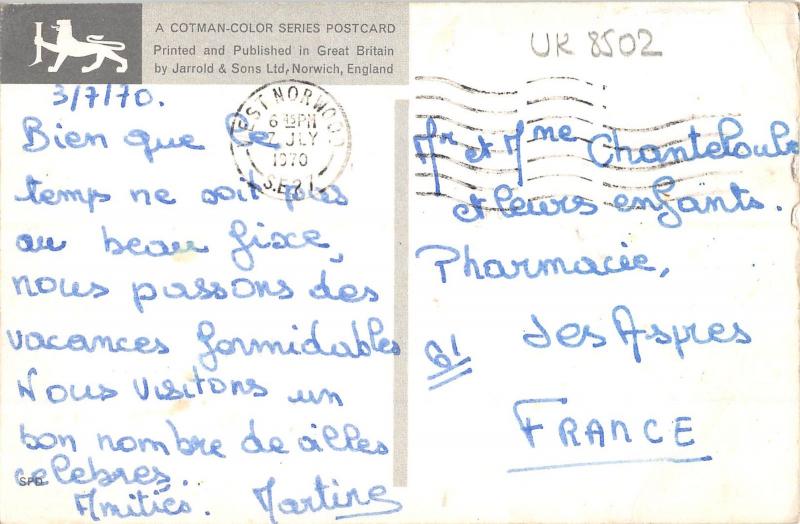 A COTMAN-COLOR SERIES POSTCARD
Printed and Published in Great Britain
by Jarrold & Sons Ltd, Norwich, England
UK 8502
WEST NORWOOD
6 45PM
7 JLY
1970
S.E.27
3/7/70.
Bien que le
temps ne soit pas
au beau fixe,
nous passons des
vacances formidables
Nous visitons un
bon nombre de villes
celebres.
Amitiés. Martine
SPD
Mr et Mme Chanteloube
et leurs enfants.
Pharmacie,
61 Les Aspres
FRANCE